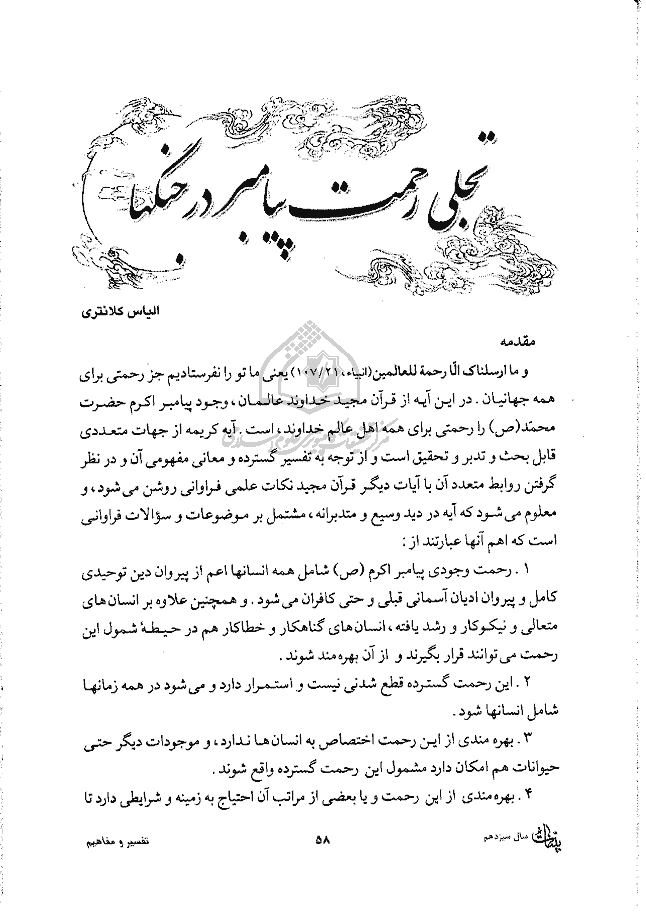 تجلی رحمت پیامبر در جنگها
الیاس کلانتری
مقدمه
و ما ارسلناک الّا رحمة للعالمین(انبیاء، ۱۰۷/۲۱) یعنی ما تو را نفرستادیم جز رحمتی برای
همه جهانیان . در این آیه از قرآن مجید خداوند عالمان ، وجود پیامبر اکرم حضرت
محمّد(ص) را رحمتی برای همه اهل عالم خداوند ، است . آیه کریمه از جهات متعددی
قابل بحث و تدبر و تحقیق است و از توجه به تفسیر گسترده و معانی مفهومی آن و در نظر
گرفتن روابط متعدد آن با آیات دیگر قرآن مجید نکات علمی فراوانی روشن می شود ، و
معلوم می شود که آیه در دید وسیع و متدبرانه ، مشتمل بر موضوعات و سؤالات فراوانی
است که اهم آنها عبارتند از :
۱ . رحمت وجودی پیامبر اکرم (ص) شامل همه انسانها اعم از پیروان دین توحیدی
کامل و پیروان ادیان آسمانی قبلی و حتی کافران می شود . و همچنین علاوه بر انسان های
متعالی و نیکوکار و رشد یافته ، انسان های گناهکار و خطاکار هم در حیطهٔ شمول این
رحمت می توانند قرار بگیرند و از آن بهره مند شوند .
۲ . این رحمت گسترده قطع شدنی نیست و استمرار دارد و می شود در همه زمانها
شامل انسانها شود .
۳ . بهره مندی از این رحمت اختصاص به انسان ها ندارد ، و موجودات دیگر حتی
حیوانات هم امکان دارد مشمول این رحمت گسترده واقع شوند .
۴ . بهره مندی از این رحمت و یا بعضی از مراتب آن احتیاج به زمینه و شرایطی دارد تا
بینات سال سیزدهم
۵۸
تفسیر و مفاهیم